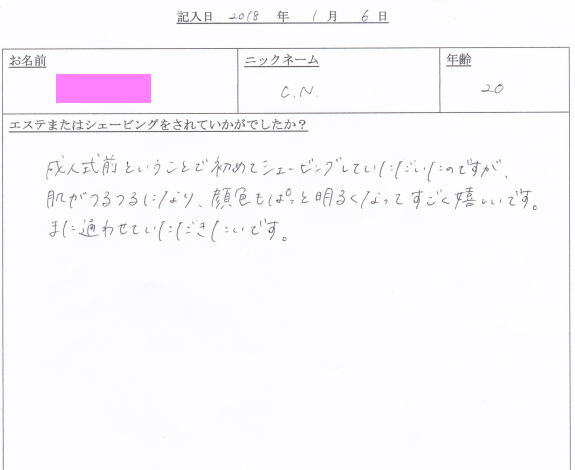 記入日 2018 年 1 月 6 日
お名前 ニックネーム 年齢
C.N. 20
エステまたはシェービングをされていかがでしたか?
成人式前ということで初めてシェービングしていただいたのですが、
肌がつるつるになり、顔色もぱっと明るくなってすごく嬉しいです。
また通わせていただきたいです。